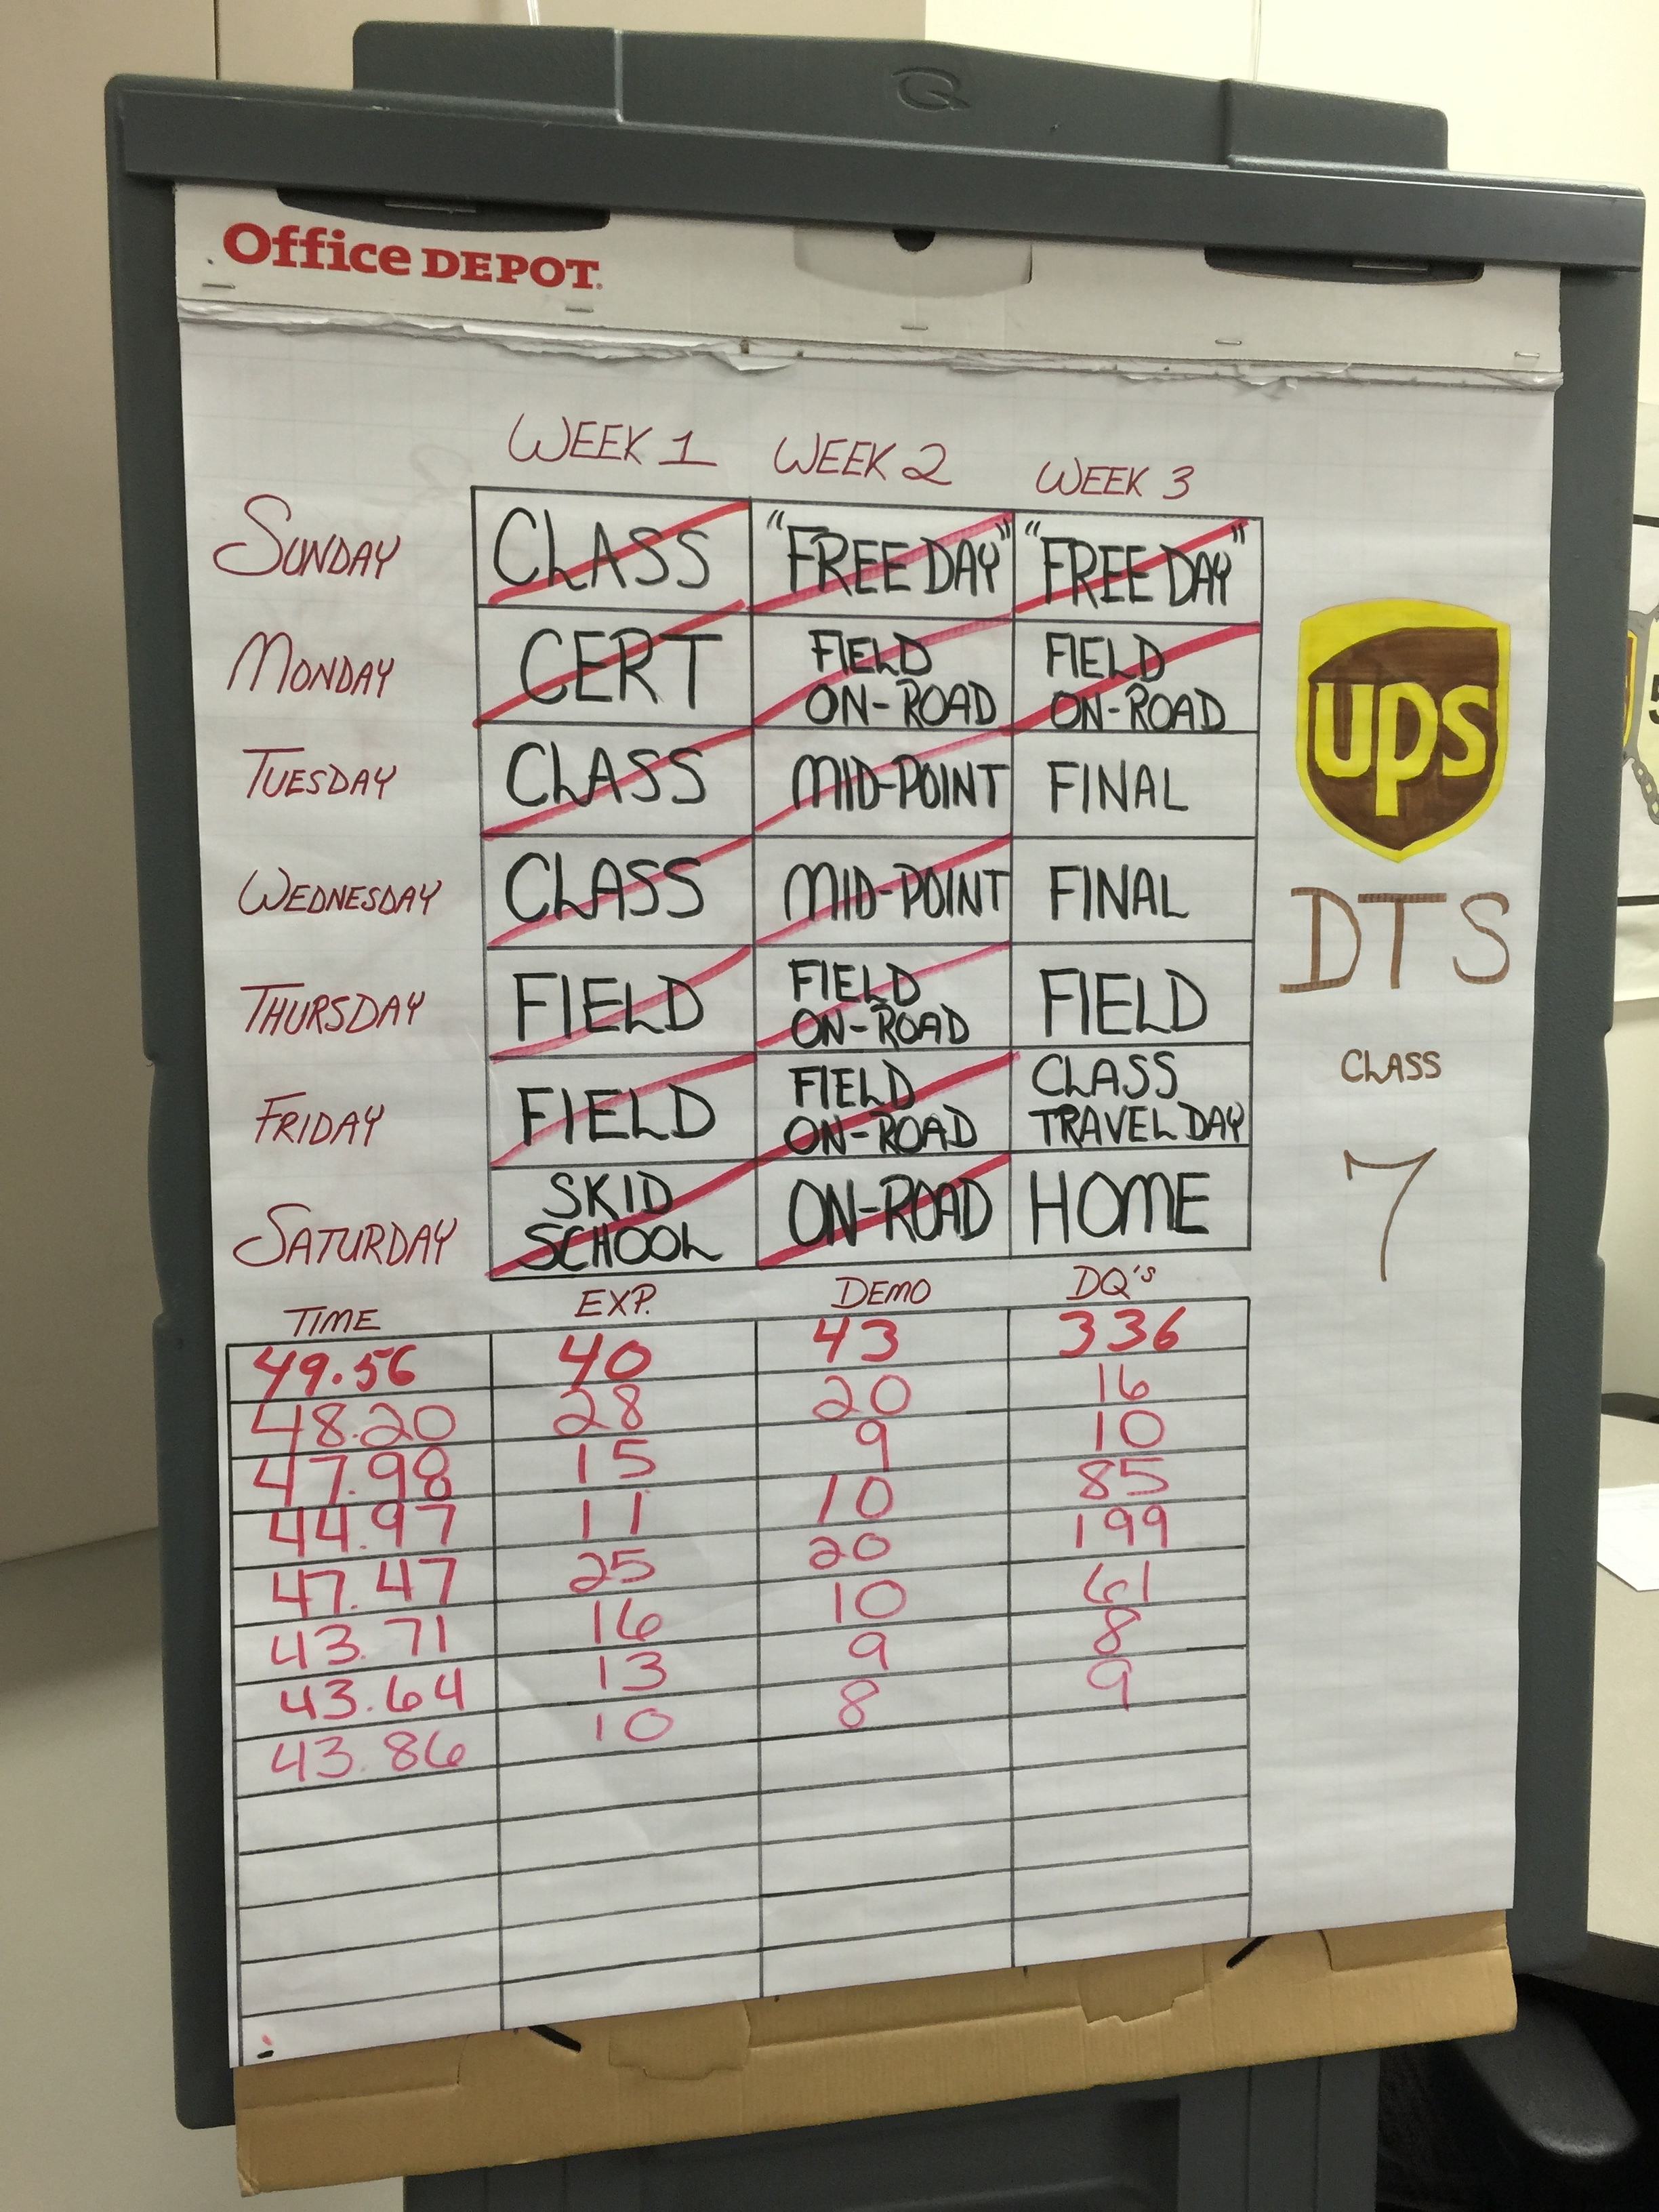 Office DEPOT.
WEEK 1 WEEK 2 WEEK 3
SUNDAY CLASS "FREE DAY" "FREE DAY"
MONDAY CERT FIELD ON-ROAD FIELD ON-ROAD
TUESDAY CLASS MID-POINT FINAL
WEDNESDAY CLASS MID-POINT FINAL
THURSDAY FIELD FIELD ON-ROAD FIELD
FRIDAY FIELD FIELD ON-ROAD CLASS TRAVEL DAY
SATURDAY SKID SCHOOL ON-ROAD HOME
ups
DTS
CLASS
7
TIME EXP. DEMO DQ's
49.56 40 43 336
48.20 28 20 16
47.98 15 9 10
44.97 11 10 85
47.47 25 20 199
43.71 16 10 61
43.64 13 9 8
43.86 10 8 9
5